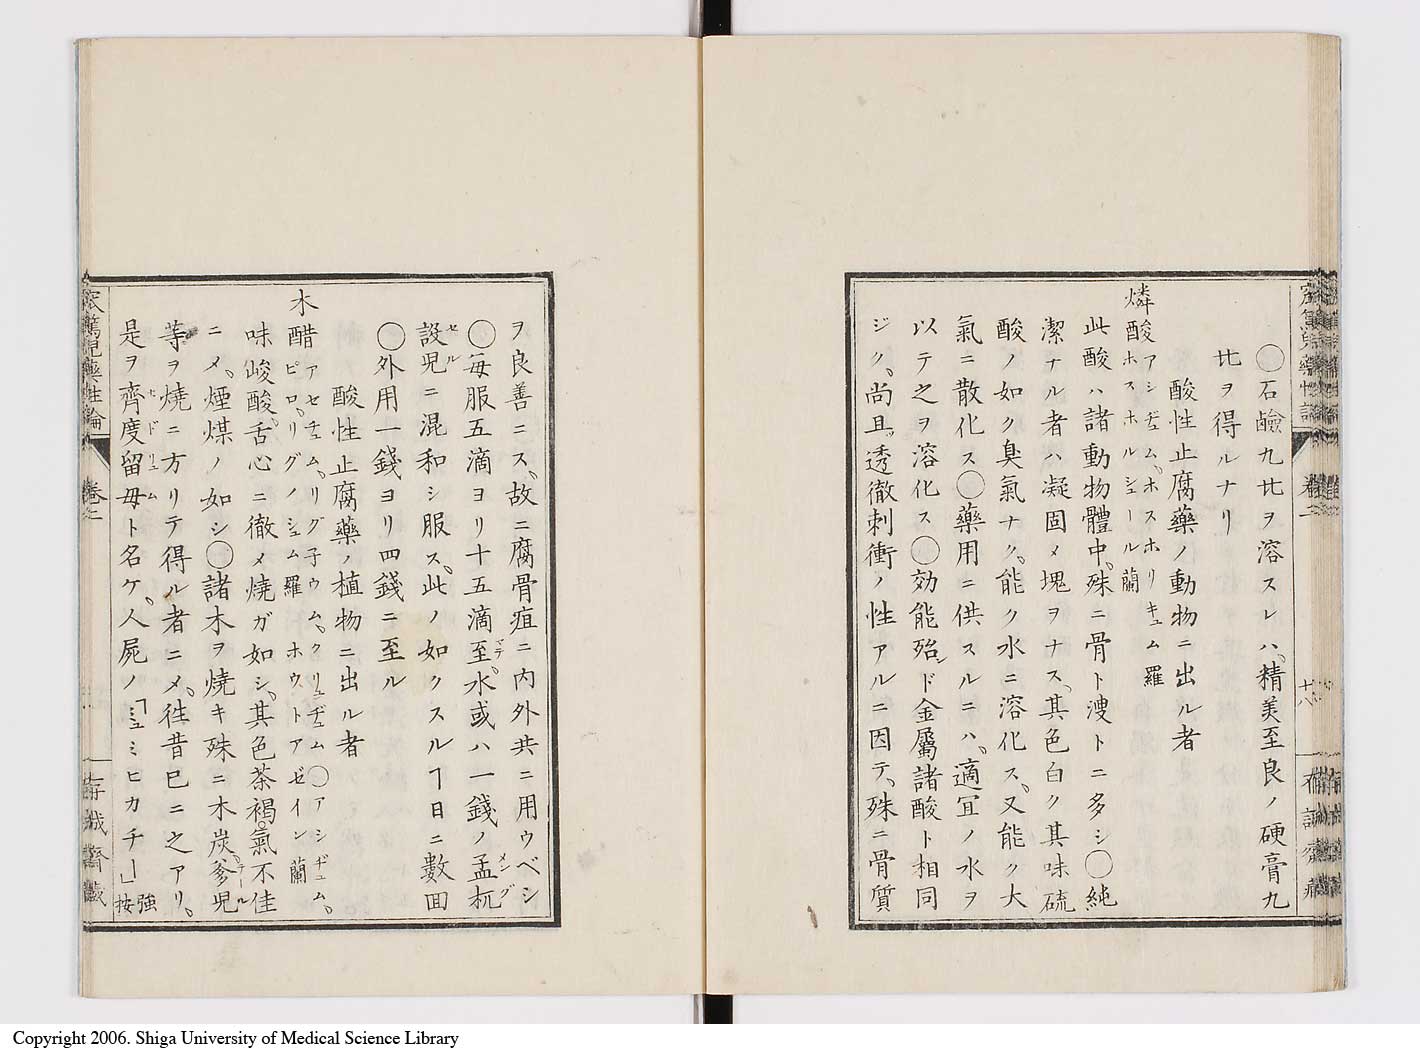 ◯石鹼九廿ヲ溶スレハ、精美至良ノ硬膏九
廿ヲ得ルナリ
酸性止腐藥ノ動物ニ出ル者
燐酸アシヂュム、ホスホリキュム羅
ホスホルシュール蘭
此酸ハ諸動物體中、殊ニ骨ト溲トニ多シ◯純
潔ナル者ハ凝固メ塊ヲナス、其色白ク其味硫
酸ノ如ク臭氣ナク、能ク水ニ溶化ス、又能ク大
氣ニ散化ス◯藥用ニ供スルニハ、適冝ノ水ヲ
以テ之ヲ溶化ス◯効能殆ンド金屬諸酸ト相同
ジク、尚且、透徹刺衝ノ性アルニ因テ、殊ニ骨質
十八
ヲ良善ニス、故ニ腐骨疽ニ内外共ニ用ウベシ
◯毎服五滴ヨリ十五滴至マデ、水或ハ一錢ノ孟杬メング
設児セルニ混和シ服ス、此ノ如クスルヿ日ニ數回
◯外用一錢ヨリ四錢ニ至ル
酸性止腐藥ノ植物ニ出ル者
木醋アセヂュム、リグ子ウム、クリュヂュム◯アシヂュム、
ピロ、リグノシュム羅 ホウトアゼイン蘭
味峻酸、舌心ニ徹メ燒ガ如シ、其色茶褐、氣不佳
ニメ、煙煤ノ如シ◯諸木ヲ燒キ殊ニ木炭、爹児テール
等ヲ燒ニ方リテ得ル者ニメ、徃昔已ニ之アリ、
是ヲ齊度留毋セドリュムト名ケ、人屍ノ「ミュミヒカチー」強
按
卷二
存誠齋藏
Copyright 2006. Shiga University of Medical Science Library